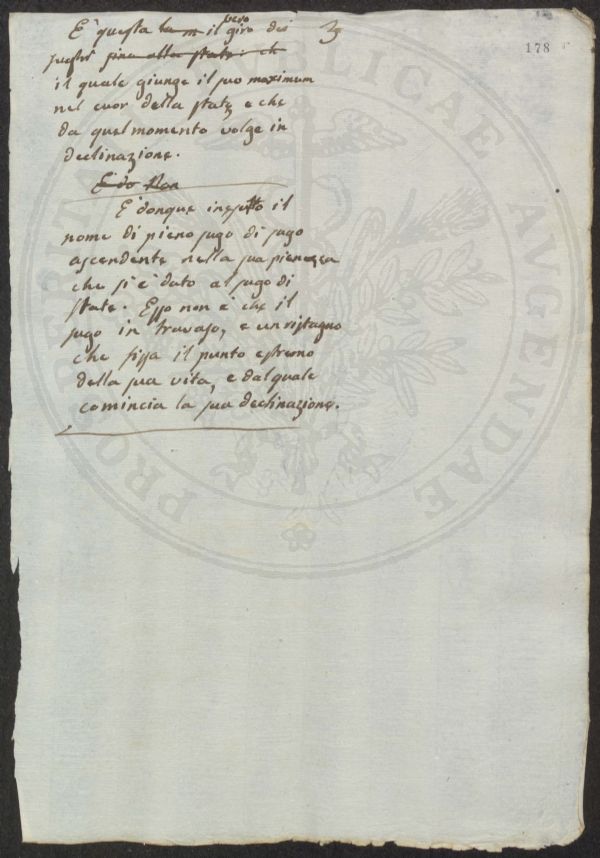 3
178
E' questa la m il vero giro dei
sughi sino alla state: che
il quale giunge il suo maximum
nel cuor della state e che
da quel momento volge in
declinazione.
E' do Non
E' donque inesatto il
nome di pieno sugo di sugo
ascendente nella sua pienezza
che si è dato al sugo di
state. Esso non è che il
sugo in travaso, e un ristagno
che fissa il punto estremo
della sua vita, e dal quale
comincia la sua declinazione.
PROSPERITATI PUBLICAE AUGENDAE